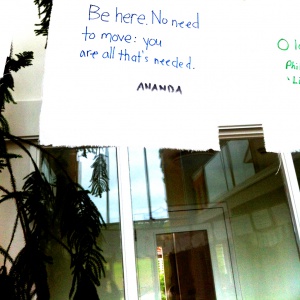 Be here. No need
to move: you
are all that's needed.
ANANDA